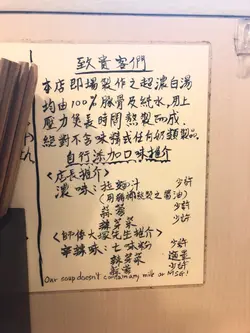 致貴客們
本店即場製作之超濃白湯
均由100%豚骨及純水,用上
壓力煲長時間熬製而成,
絕對不含味精或任何奶類製品。
自行添加口味推介
<店長推介>
濃味:拉麵汁 少許
(用豬骨熬製之醬油)
蒜蓉 少許
辣芽菜
<師傅大塚先生推介>
辛辣味:七味粉 少許
辣芽菜 適量
蒜蓉 少許
Our soup doesn't contain any milk or MSG!